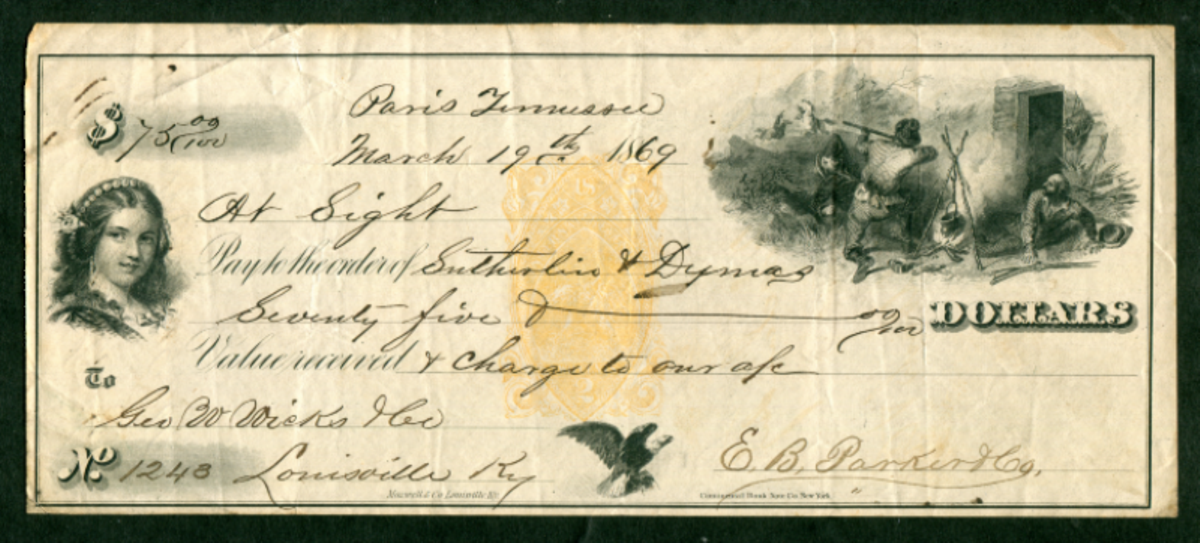 Paris Tennessee
$ 75 00/100
March 19th 1869
At Sight
Pay to the order of Sutherlin & Dymas
Seventy five & 00/100 DOLLARS
Value received & charge to our a/c
To
Geo W Wicks & Co
No 1243 Louisville Ky
E. B. Parker & Co.
Maxwell & Co Louisville Ky.
Continental Bank Note Co. New York